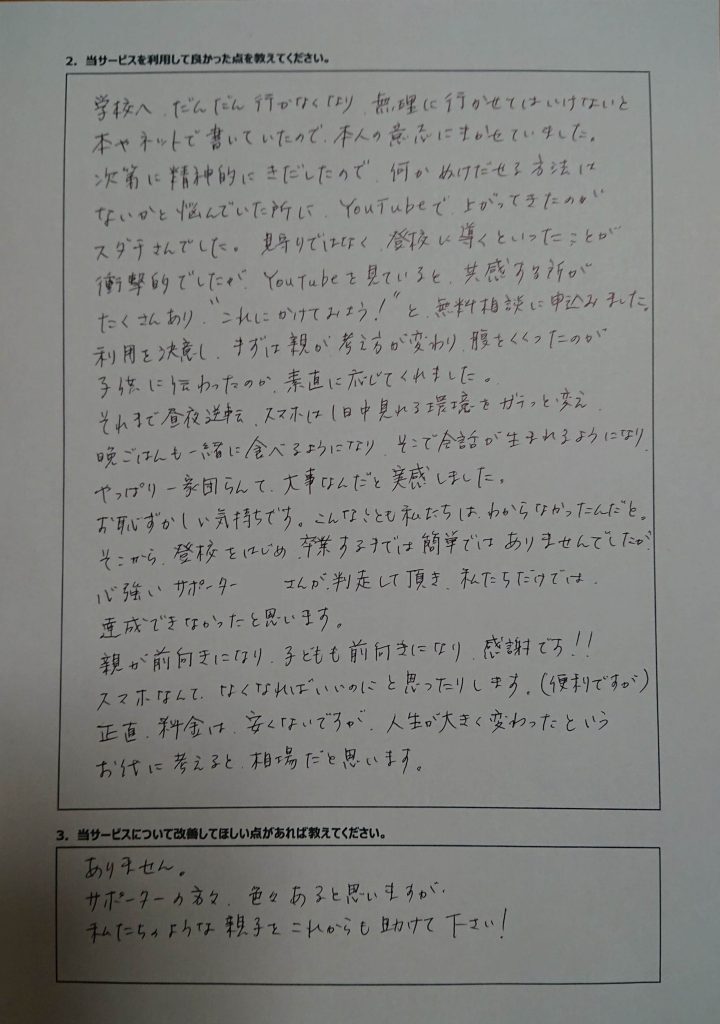 2. 当サービスを利用して良かった点を教えてください。
学校へ、だんだん行かなくなり、無理に行かせてはいけないと
本やネットで書いていたので、本人の意志にまかせていました。
次第に精神的にきだしたので、何かぬけだせる方法は
ないかと悩んでいた所に、YouTubeで、上がってきたのが
スダチさんでした。見守りではなく、登校に導くといったことが
衝撃的でしたが、Youtubeを見ていると、共感する所が
たくさんあり、"これにかけてみよう!"と、無料相談に申込みました。
利用を決意し、まずは親が考え方が変わり、腹をくくったのが
子供に伝わったのか、素直に応じてくれました。
それまで昼夜逆転、スマホは1日中見れる環境をガラっと変え、
晩ごはんも一緒に食べるようになり、そこで会話が生まれるようになり、
やっぱり一家団らんて、大事なんだと実感しました。
お恥ずかしい気持ちです。こんなことも私たちは、わからなかったんだと。
そこから、登校をはじめ、卒業するまでは簡単ではありませんでしたが、
心強いサポーター さんが、判走して頂き、私たちだけでは、
達成できなかったと思います。
親が前向きになり、子どもも前向きになり、感謝です!!
スマホなんて、なくなればいいのにと思ったりします。(便利ですが)
正直、料金は、安くないですが、人生が大きく変わったという
お代に考えると、相場だと思います。
3. 当サービスについて改善してほしい点があれば教えてください。
ありません。
サポーターの方々、色々あると思いますが、
私たちのような親子をこれからも助けて下さい!